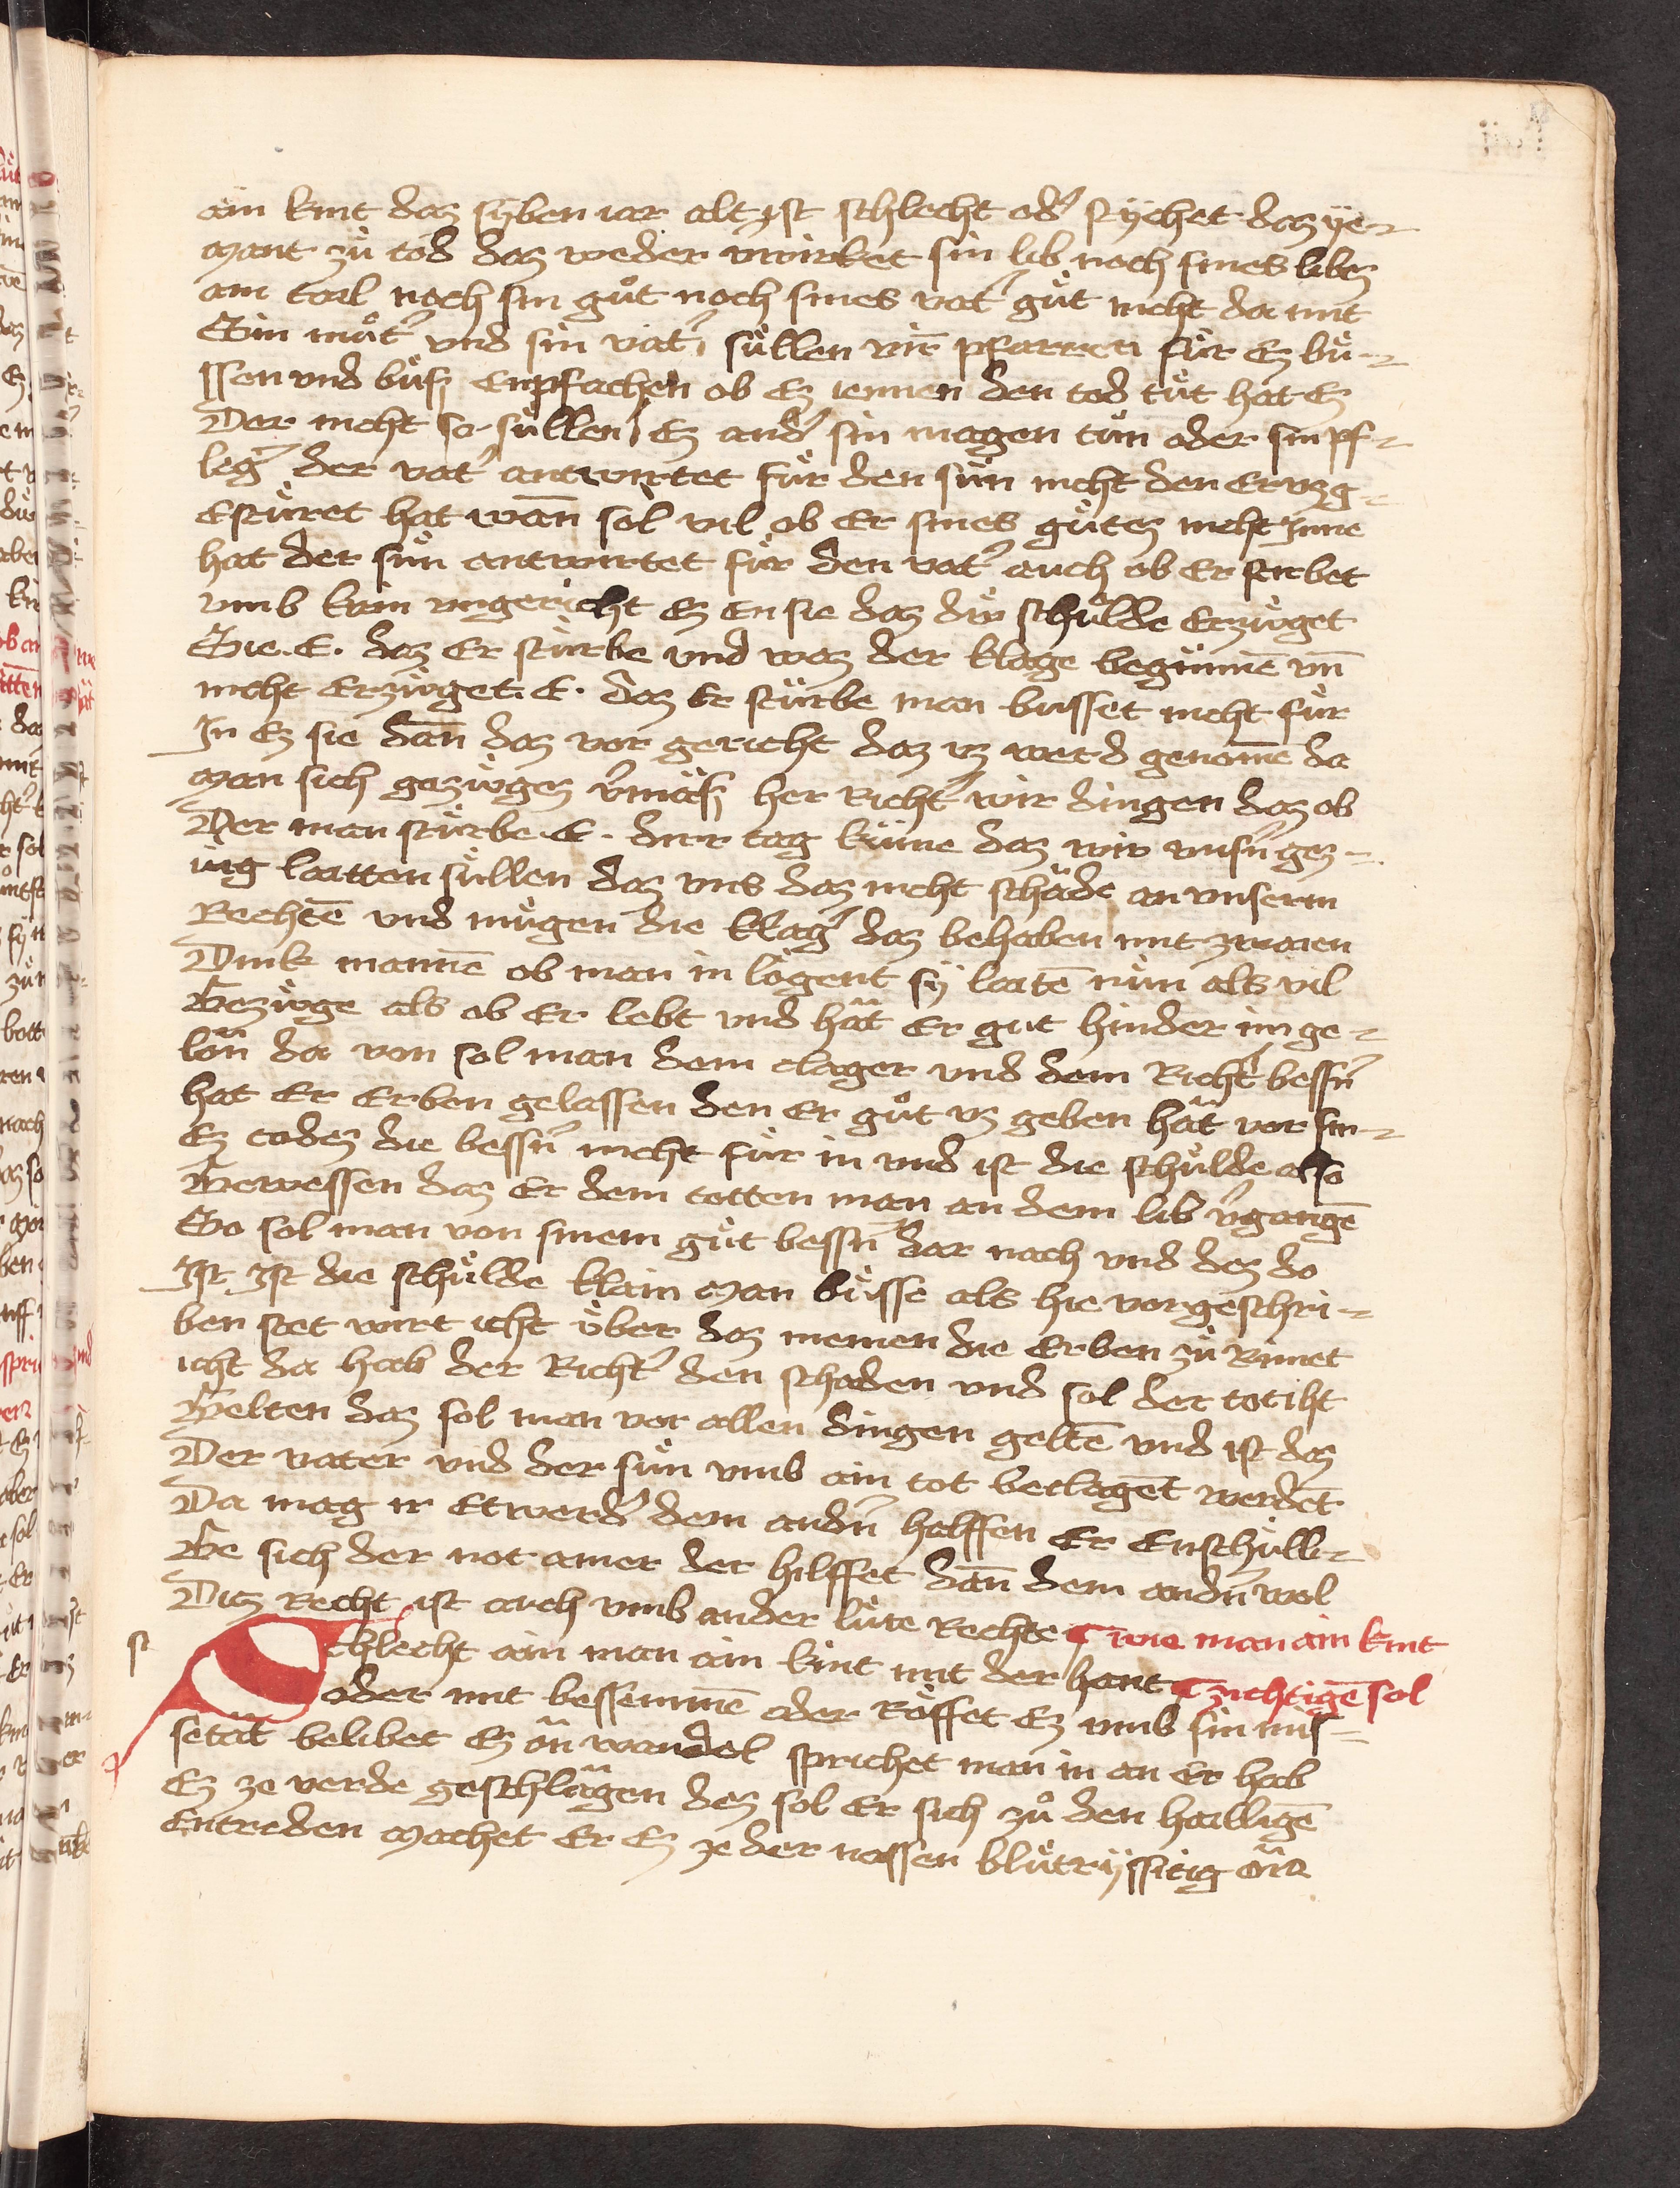 ain kint daz syben iar alt ist schlecht od' stychet daz ye-
mant zů tod daz weder wurket sin lib noch sines libez
ain tail noch sin gůt noch sines vat' gůt nicht da mit
Sin můt' vnd sin vat' süllen vn̄ pfarren für ez bů-
ssen vnd bůß enpfachen ob ez iemen den tod tůt hat ez
Der nicht so süllen ez and' sin magen tůn oder sin pf-
leg' der vat' antwrtet für den sun nicht den er vzg-
estüret hat wan̄ sol vil ob er sines gůtez nicht Inne
hat der sun antwurtet für den vat' auch ob er stirbet
vmb kain vngericht ez en sie daz diu schulde erzüget
Sie .E. daz er stürbe vnd waz der klage beginnē vn̄
nicht erzüget .E. daz er stürbe man busset nicht für
In ez sie dan̄ daz vor gericht daz vz werd genomē da
man sich gezügez v'mäß her Richt' wir dingen daz ob
Der man stürbe .E. der tag kume daz wir vnsn' gez-
üg laitten süllen daz vns daz nicht schäde an vnserm
Rechtē vnd mügen die klag' daz behaben mit zwaien
Dink mannē ob man in lögent sy laitē nün als vil
Gezüge als ob er lebt vnd hät er gut hinder im ge-
lon̄ da von sol man dem clager vnd dem Richt' bessn'
hat er erben gelassen den er gůt vz geben hät vor sin-
Ez todez die bessn' nicht für in vnd ist die schulde also
Gewessen daz er dem totten man an dem lib v'gangē
So sol man von sinem gůt bessn' dar nach vnd dez do
Ist Ist die schulde klain man büsse als hie vorgeschri-
ben stet wirt icht über daz niemen die erben zů Rinnet
icht da hab der Richt' den schaden vnd sol der tot iht
Gelten daz sol man vor allen dingen geltē vnd ist daz
Der vater vnd der sun vmb ain tot beclagēt werdēt
Da mag ir etwed' dem andn' helffen er enschulli-
Ge sich der not amer der hilffet dan̄ dem andn' wol
Ditz Recht ist auch vmb ander lüte Rechte wie man ain kint
Schlecht ain man ain kint mit der hant züchtigē sol
oder mit bessemmē oder Röffet ez vmb sin mis-
setät belibet ez on̄ wandel sprichet man in an er hab
Ez ze verde geschlagen dez sol er sich zů den hailligē
Entreden machet er ez ze der nassen blůtryssitig on̄